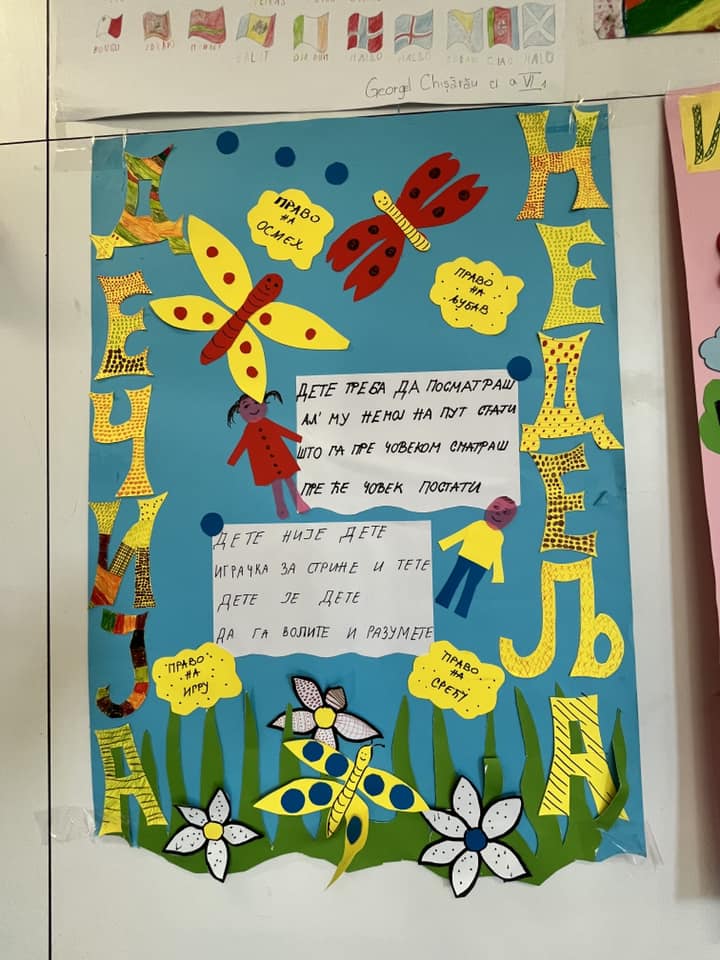 Georgel Chișărău cl a VI 1
ДЕЧИЈА
НЕДЕЉА
ПРАВО
НА
ОСМЕХ
ПРАВО
НА
ЉУБАВ
ДЕТЕ ТРЕБА ДА ПОСМАТРАШ
АЛ' МУ НЕМОЈ НА ПУТ СТАТИ
ШТО ГА ПРЕ ЧОВЕКОМ СМАТРАШ
ПРЕ ЋЕ ЧОВЕК ПОСТАТИ
ДЕТЕ НИЈЕ ДЕТЕ
ИГРАЧКА ЗА СТРИНЕ И ТЕТЕ
ДЕТЕ ЈЕ ДЕТЕ
ДА ГА ВОЛИТЕ И РАЗУМЕТЕ
ПРАВО
НА
ИГРУ
ПРАВО
НА
СРЕЋУ